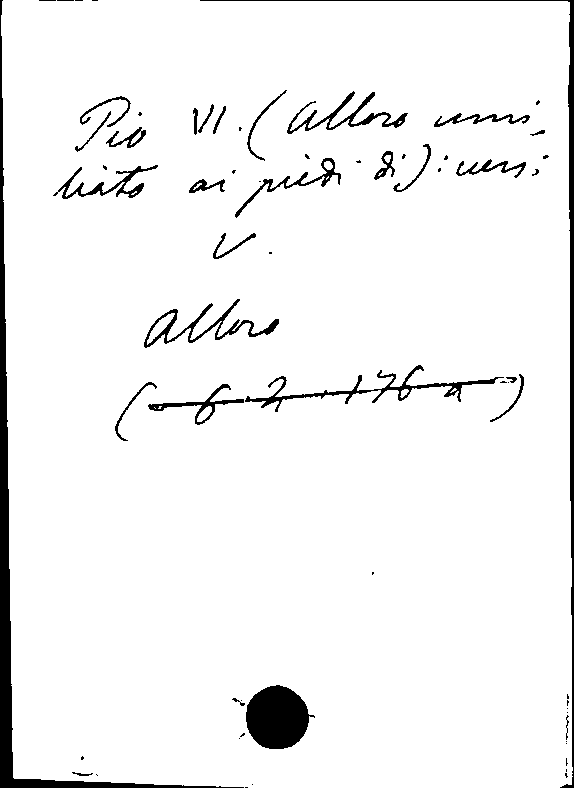 Pio VI. (Alloro umi-
liato ai piedi di): versi
V.
Alloro
(6. 2. 176 a)